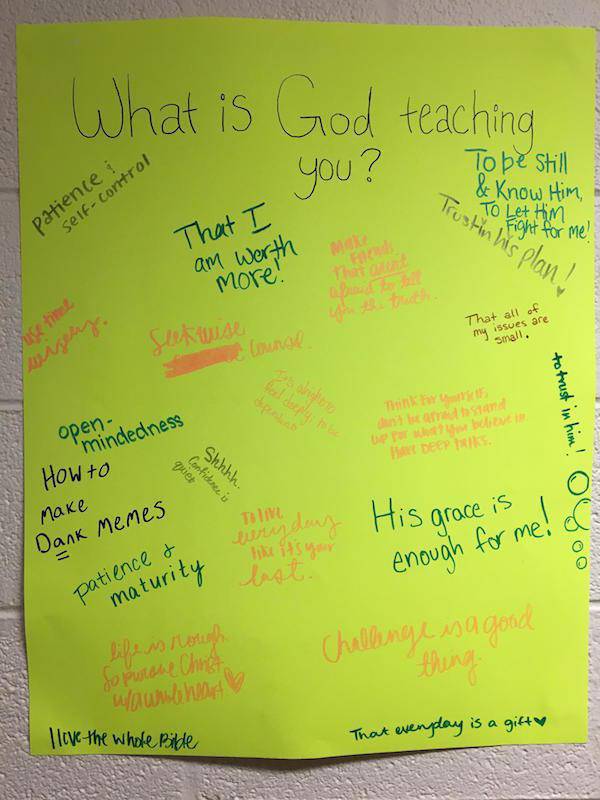 What is God teaching
you?
Patience &
self-control
To be still
& Know Him,
To Let Him
Fight for me!
Trust in his plan!
That I
am worth
more!
Make
Friends
that arent
afraid to tell
you the truth.
use time
wisely.
Seek wise
Counsel
That all of
my issues are
small.
to trust in him!
It is alright to
feel deeply, to be
Think for yourself,
don't be afraid to stand
up for what you believe in
Have DEEP talks.
open-
mindedness
Shhhh.
Confidence is
quiet
How to
Make
Dank Memes
To live
everyday
like it's your
last.
His grace is
enough for me!
patience &
maturity
life is rough
So pursue Christ
w/ a whole heart
Challenge is a good
thing
I love the whole Bible
That everyday is a gift